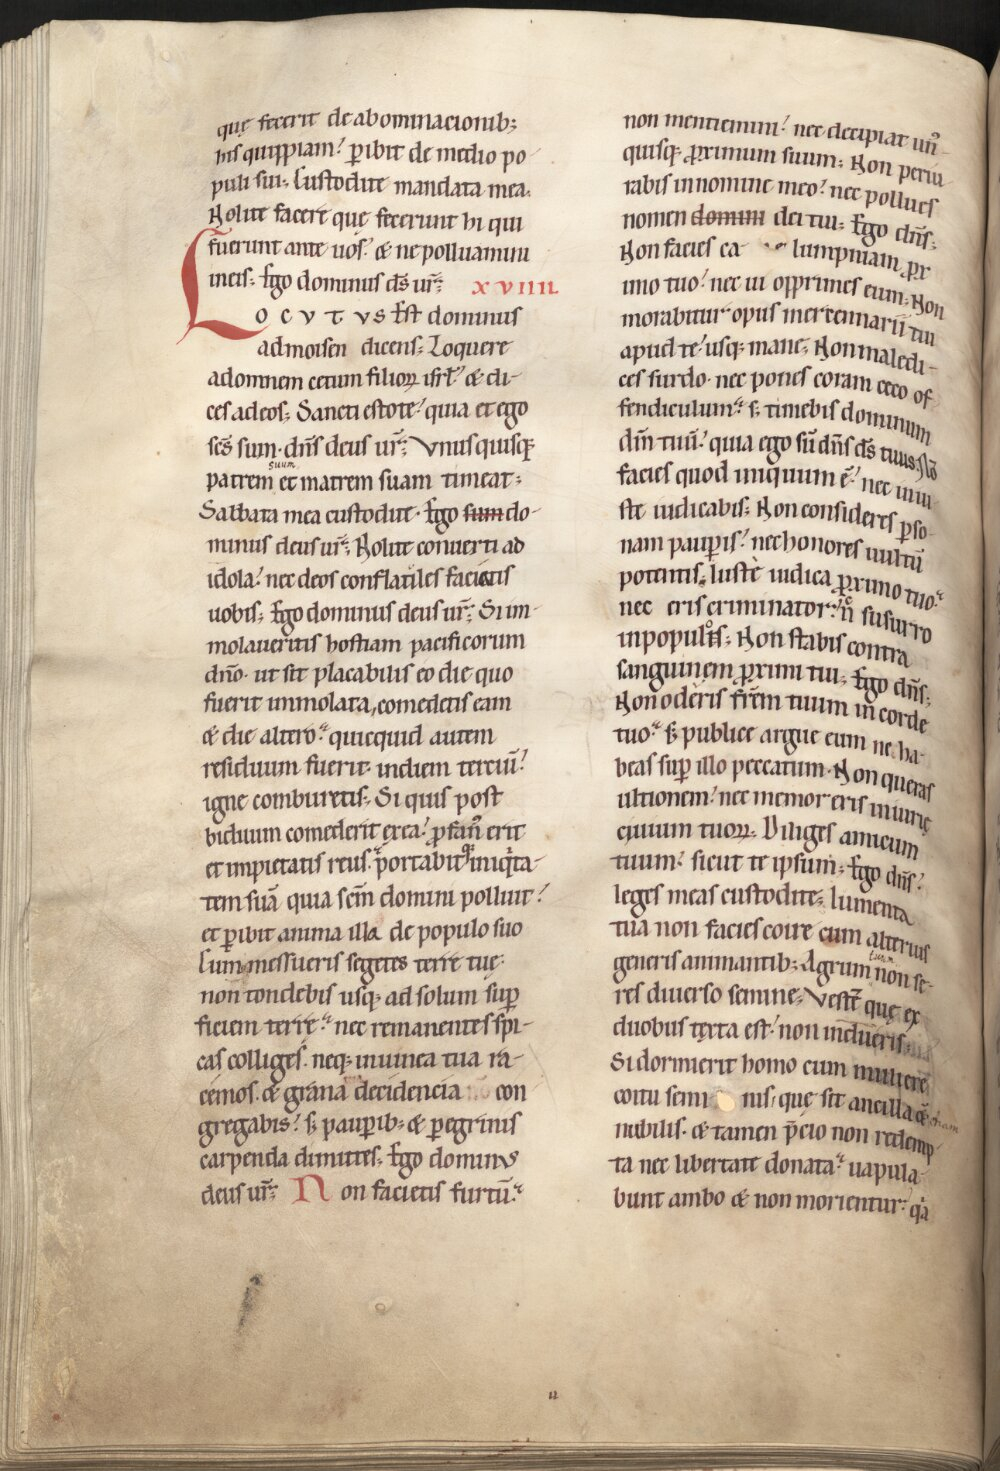 quę fecerit de abominacionib;
his quippiam? ꝑibit de medio po-
puli sui; Custodite mandata mea.
Nolite facere quę fecerunt hi qui
fuerunt ante uos? & ne polluamini
in eis; Ego dominus ds̄ ur̄; xviiii.
Locutus Est dominus
ad moisen dicens; Loquere
ad omnem cetum filioꝝ isrl̄? & di-
ces ad eos; Sancti estote? quia et ego
scs̄ sum. dn̄s deus ur̄; Vnusquisq;
patrem suum et matrem suam timeat;
Sabbata mea custodite. Ego sum do-
minus deus ur̄; Nolite converti ad
idola? nec deos conflatiles faciatis
uobis; Ego dominus deus ur̄; Si im-
molaueritis hostiam pacificorum
dn̄o. ut sit placabilis eo die quo
fuerit immolata, comedetis eam
& die altero? quicquid autem
residuum fuerit in diem terciū?
igne comburetis; Si quis post
biduum comederit ex ea? ꝓfan᷒ erit
et impietatis reus? portabitq; iniq̇ta-
tem suā quia scm̄ domini polluit?
et ꝑibit anima illa de populo suo
Cum messueris segetes terre tuę.
non tondebis usq; ad solum suꝑ
ficiem terrę? nec remanentes spi-
cas colliges. neq; in uinea tua ra-
cemos. & grana decidencia con
gregabis? s; pauꝑib; & ꝑegrinis
carpenda dimittes; Ego dominus
deus ur̄; Non facietis furtū?
non mentiemini? nec decipiat un᷒
quisq; ꝓximum suum; Non periu
rabis in nomine meo? nec pollues
nomen domini dei tui; Ego dn̄s;
Non facies ca lumpniam ꝓx
imo tuo? nec ui opprimes eum; Non
morabitur opus mercennarii tui
apud te? usq; mane; Non maledi-
ces surdo. nec pones coram ceco of
fendiculum? s; timebis dominum
dm̄ tuū? quia ego sū dn̄s ds̄ tuus; Nō
facies quod iniquum ē? nec iniu
ste iudicabis; Non consideres ꝑso-
nam pauꝑis? nec honores uultū
potentis; Iuste iudica ꝓximo tuo?
nec eris criminator? n̄ susurro
in populis; Non stabis contra
sanguinem ꝓximi tui; Ego dn̄s;
Non oderis frēm tuum in corde
tuo? s; publice argue eum ne ha-
beas suꝑ illo peccatum. Non queras
ultionem? nec memor eris iniurię
ciuium tuoꝝ; Diliges amicum
tuum? sicut te ipsum; Ego dn̄s?
leges meas custodite; Iumenta
tua non facies coire cum alterius
generis animantib; Agrum tuum non se-
res diuerso semine; Vestē quę ex
duobus texta est? non indueris;
Si dormierit homo cum muliere
coitu semi nis; que sit ancilla & etiam
nubilis. & tamen p̄cio non redemp
ta nec libertate donata? uapula-
bunt ambo & non morientur. q̇a